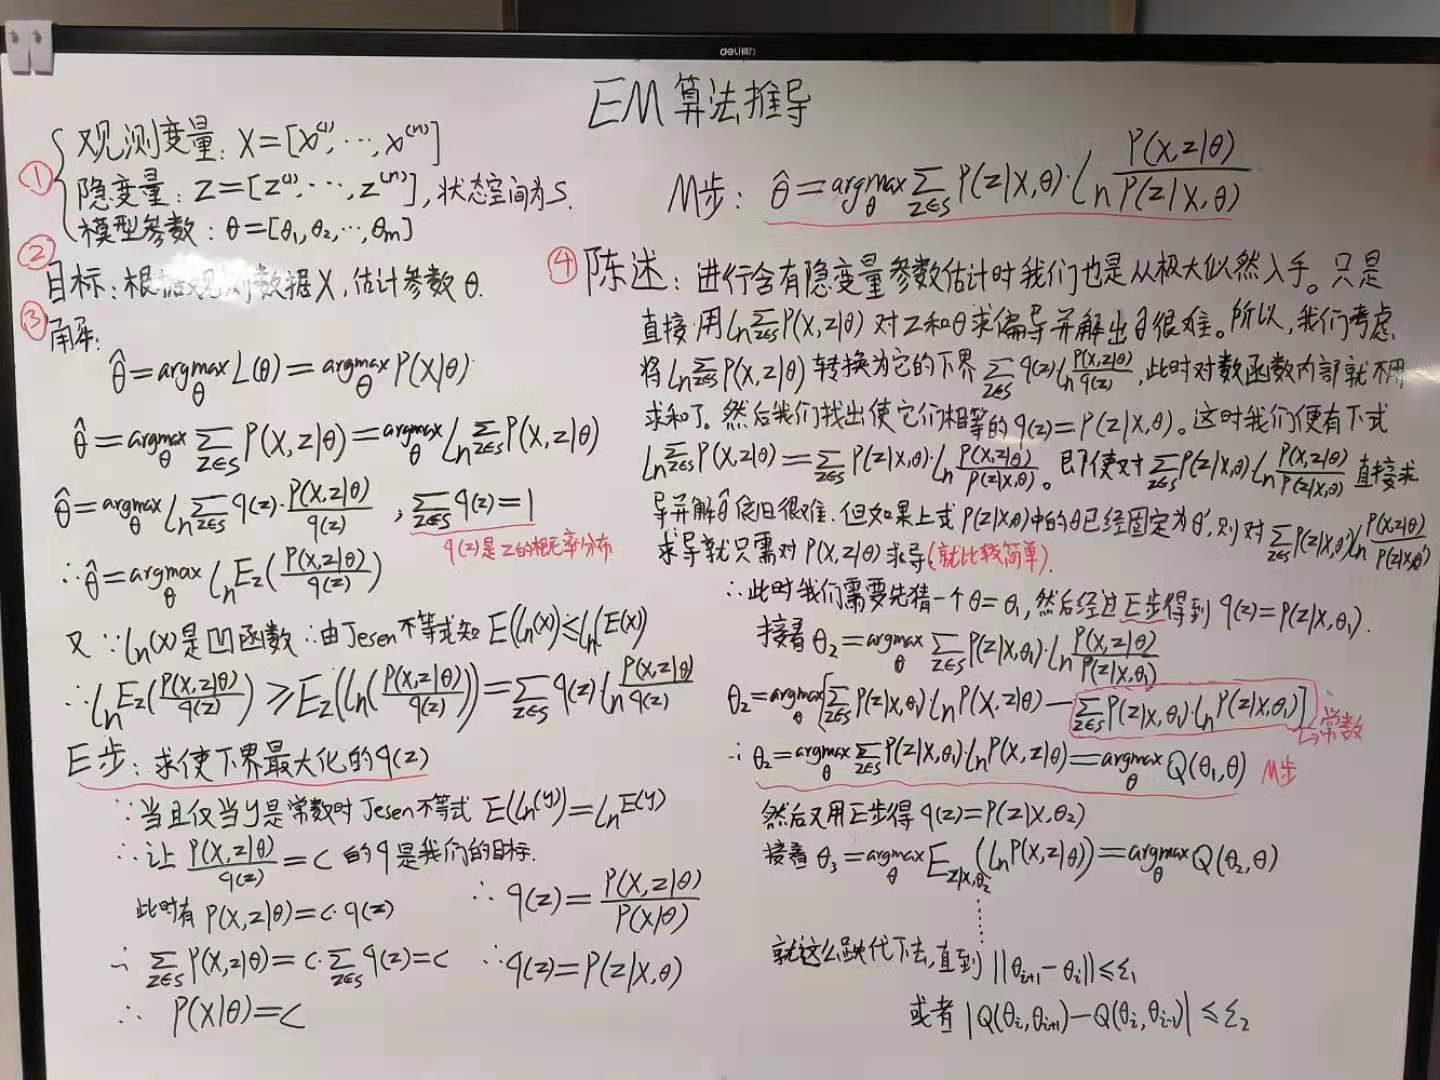 deli得力
EM算法推导
① 观测变量：X=[x⁽¹⁾,⋯,x⁽ⁿ⁾]
隐变量：Z=[z⁽¹⁾,⋯,z⁽ⁿ⁾]，状态空间为S.
模型参数：θ=[θ₁,θ₂,⋯,θm]
② 目标：根据观测数据X，估计参数θ.
③ 解：
θ̂=argmax_θ L(θ)=argmax_θ P(X|θ).
θ̂=argmax_θ ∑_{Z∈S} P(X,Z|θ)=argmax_θ ln∑_{Z∈S} P(X,Z|θ)
θ̂=argmax_θ ln∑_{Z∈S} q(z)·P(X,Z|θ)/q(z) ，∑_{Z∈S} q(z)=1
q(z)是Z的概率分布
∴θ̂=argmax_θ lnE_Z(P(X,Z|θ)/q(z))
又∵ln(x)是凹函数∴由Jesen不等式知 E(ln(x))≤ln(E(x))
∴lnE_Z(P(X,Z|θ)/q(z))≥E_Z(ln(P(X,Z|θ)/q(z)))=∑_{Z∈S} q(z) ln P(X,Z|θ)/q(z)
E步：求使下界最大化的q(z)
∵当且仅当y是常数时Jesen不等式 E(ln(y))=lnE(y)
∴让 P(X,Z|θ)/q(z)=C 的q是我们的目标.
此时有 P(X,Z|θ)=C·q(z)
∴ ∑_{Z∈S} P(X,Z|θ)=C·∑_{Z∈S} q(z)=C
∴ P(X|θ)=C
∴ q(z)=P(X,Z|θ)/P(X|θ)
∴q(z)=P(Z|X,θ)
M步：θ̂=argmax_θ ∑_{Z∈S} P(Z|X,θ)·ln P(X,Z|θ)/P(Z|X,θ)
④ 陈述：进行含有隐变量参数估计时我们也是从极大似然入手。只是
直接用ln∑_{Z∈S}P(X,Z|θ)对Z和θ求偏导并解出θ̂很难。所以，我们考虑
将ln∑_{Z∈S}P(X,Z|θ)转换为它的下界∑_{Z∈S} q(z)ln P(X,Z|θ)/q(z)，此时对数函数内部就不用
求和了。然后我们找出使它们相等的q(z)=P(Z|X,θ)。这时我们便有下式
ln∑_{Z∈S}P(X,Z|θ)=∑_{Z∈S} P(Z|X,θ)·ln P(X,Z|θ)/P(Z|X,θ)。即使对∑_{Z∈S}P(Z|X,θ)·ln P(X,Z|θ)/P(Z|X,θ)直接求
导并解θ̂依旧很难．但如果上式P(Z|X,θ)中的θ已经固定为θ′，则对∑_{Z∈S}P(Z|X,θ′)ln P(X,Z|θ)/P(Z|X,θ′)
求导就只需对P(X,Z|θ)求导(就比较简单).
∴此时我们需要先猜一个θ=θ₁，然后经过E步得到 q(z)=P(Z|X,θ₁).
接着θ₂=argmax_θ ∑_{Z∈S}P(Z|X,θ₁)·ln P(X,Z|θ)/P(Z|X,θ₁)
θ₂=argmax_θ[∑_{Z∈S}P(Z|X,θ₁)·lnP(X,Z|θ)−∑_{Z∈S}P(Z|X,θ₁)·lnP(Z|X,θ₁)] ↳常数
∴θ₂=argmax_θ ∑_{Z∈S}P(Z|X,θ₁)·lnP(X,Z|θ)=argmax_θ Q(θ₁,θ) M步
然后又用E步得 q(z)=P(Z|X,θ₂)
接着θ₃=argmax_θ E_{Z|X,θ₂}(lnP(X,Z|θ))=argmax_θ Q(θ₂,θ)
⋮
就这么跌代下去，直到||θᵢ₊₁−θᵢ||≤ε₁
或者|Q(θᵢ,θᵢ₊₁)−Q(θᵢ,θᵢ₋₁)|≤ε₂